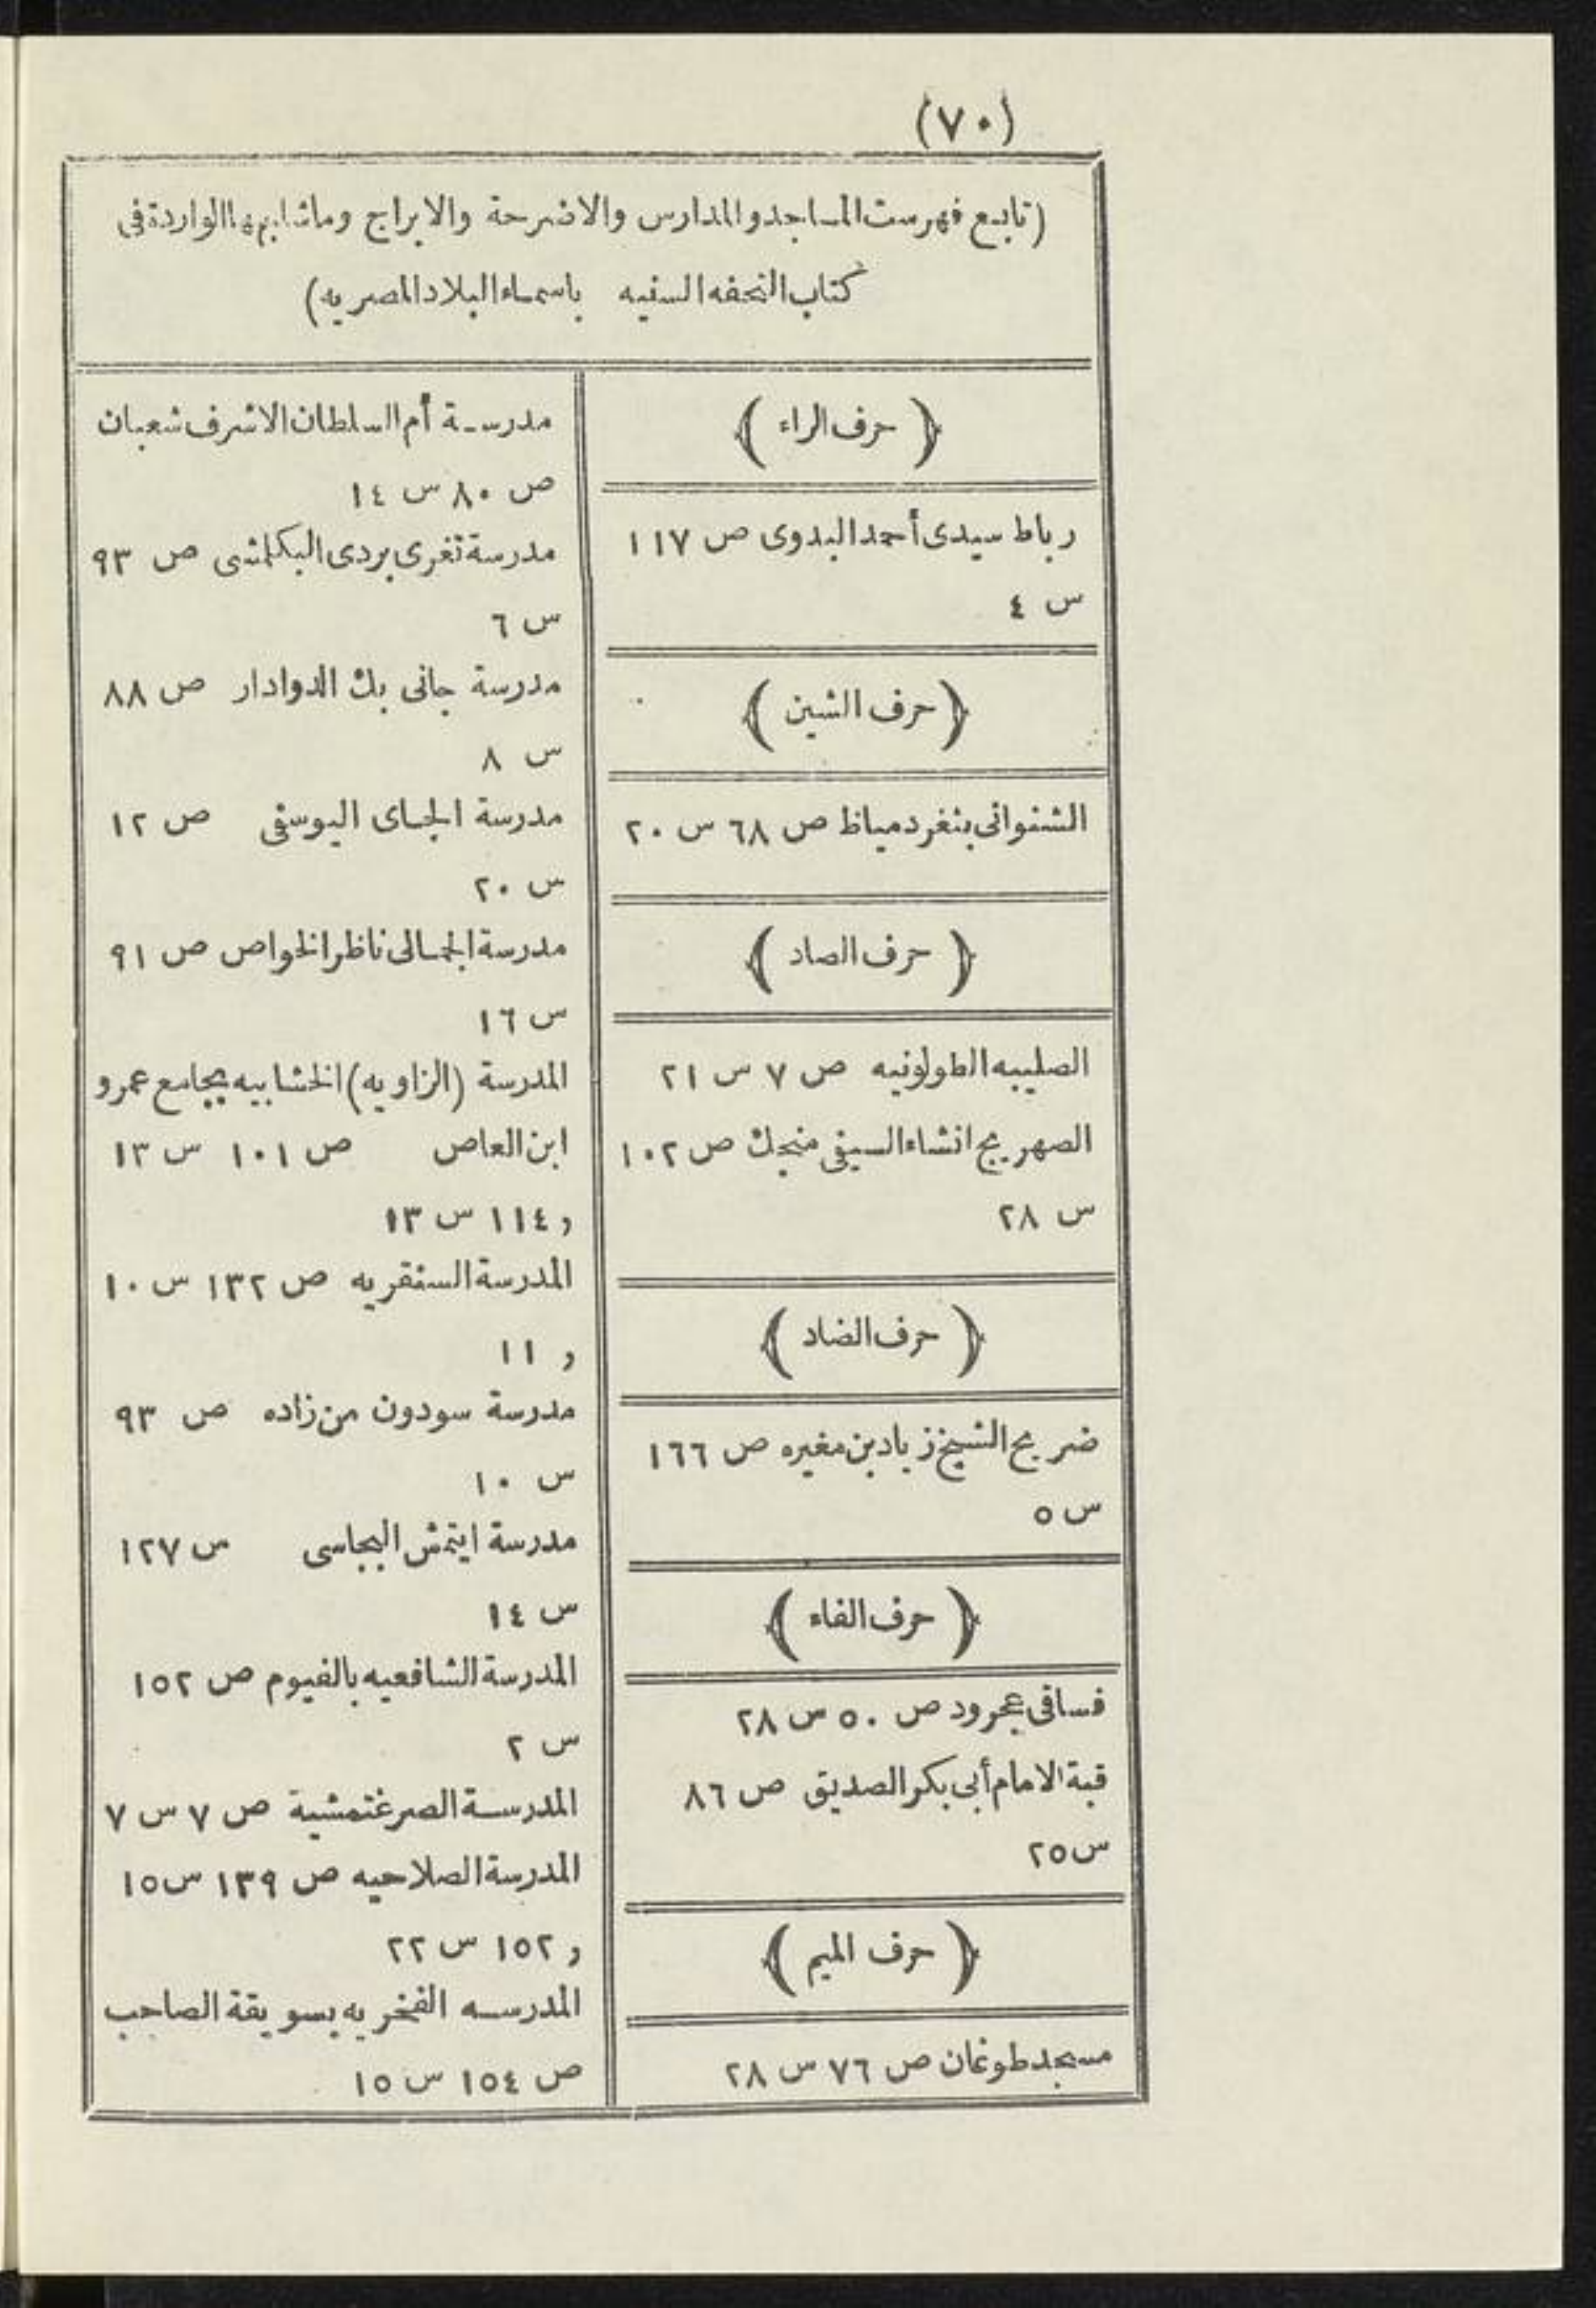 (٧٠)
(تابع فهرست المساجد والمدارس والاضرحة والابراج وماشابهها الواردة فى
كتاب التحفه السنيه باسماء البلاد المصريه)
﴿ حرف الراء ﴾
رباط سيدى أحمد البدوى ص ١١٧
س ٤
﴿ حرف الشين ﴾
الشنوانى بثغر دمياط ص ٦٨ س ٢٠
﴿ حرف الصاد ﴾
الصليبه الطولونيه ص ٧ س ٢١
الصهريج انشاء السيفى منجك ص ١٠٢
س ٢٨
﴿ حرف الضاد ﴾
ضريح الشيخ زياد بن مغيره ص ١٦٦
س ٥
﴿ حرف الفاء ﴾
فساقى عجرود ص ٥٠ س ٢٨
قبة الامام أبى بكر الصديق ص ٨٦
س ٢٥
﴿ حرف الميم ﴾
مسجد طوغان ص ٧٦ س ٢٨
مدرسة أم السلطان الاشرف شعبان
ص ٨٠ س ١٤
مدرسة تغرى بردى البكلمشى ص ٩٣
س ٦
مدرسة جانى بك الدوادار ص ٨٨
س ٨
مدرسة الجاى اليوسفى ص ١٢
س ٢٠
مدرسة الجمالى ناظر الخواص ص ٩١
س ١٦
المدرسة (الزاويه) الخشابيه بجامع عمرو
ابن العاص ص ١٠١ س ١٣
و ١١٤ س ١٣
المدرسة السنقريه ص ١٣٢ س ١٠
و ١١
مدرسة سودون من زاده ص ٩٣
س ١٠
مدرسة ايتمش البجاسى س ١٢٧
س ١٤
المدرسة الشافعيه بالفيوم ص ١٥٢
س ٢
المدرسة الصرغتمشية ص ٧ س ٧
المدرسة الصلاحيه ص ١٣٩ س ١٥
و ١٥٢ س ٢٢
المدرسه الفخريه بسويقة الصاحب
ص ١٥٤ س ١٥